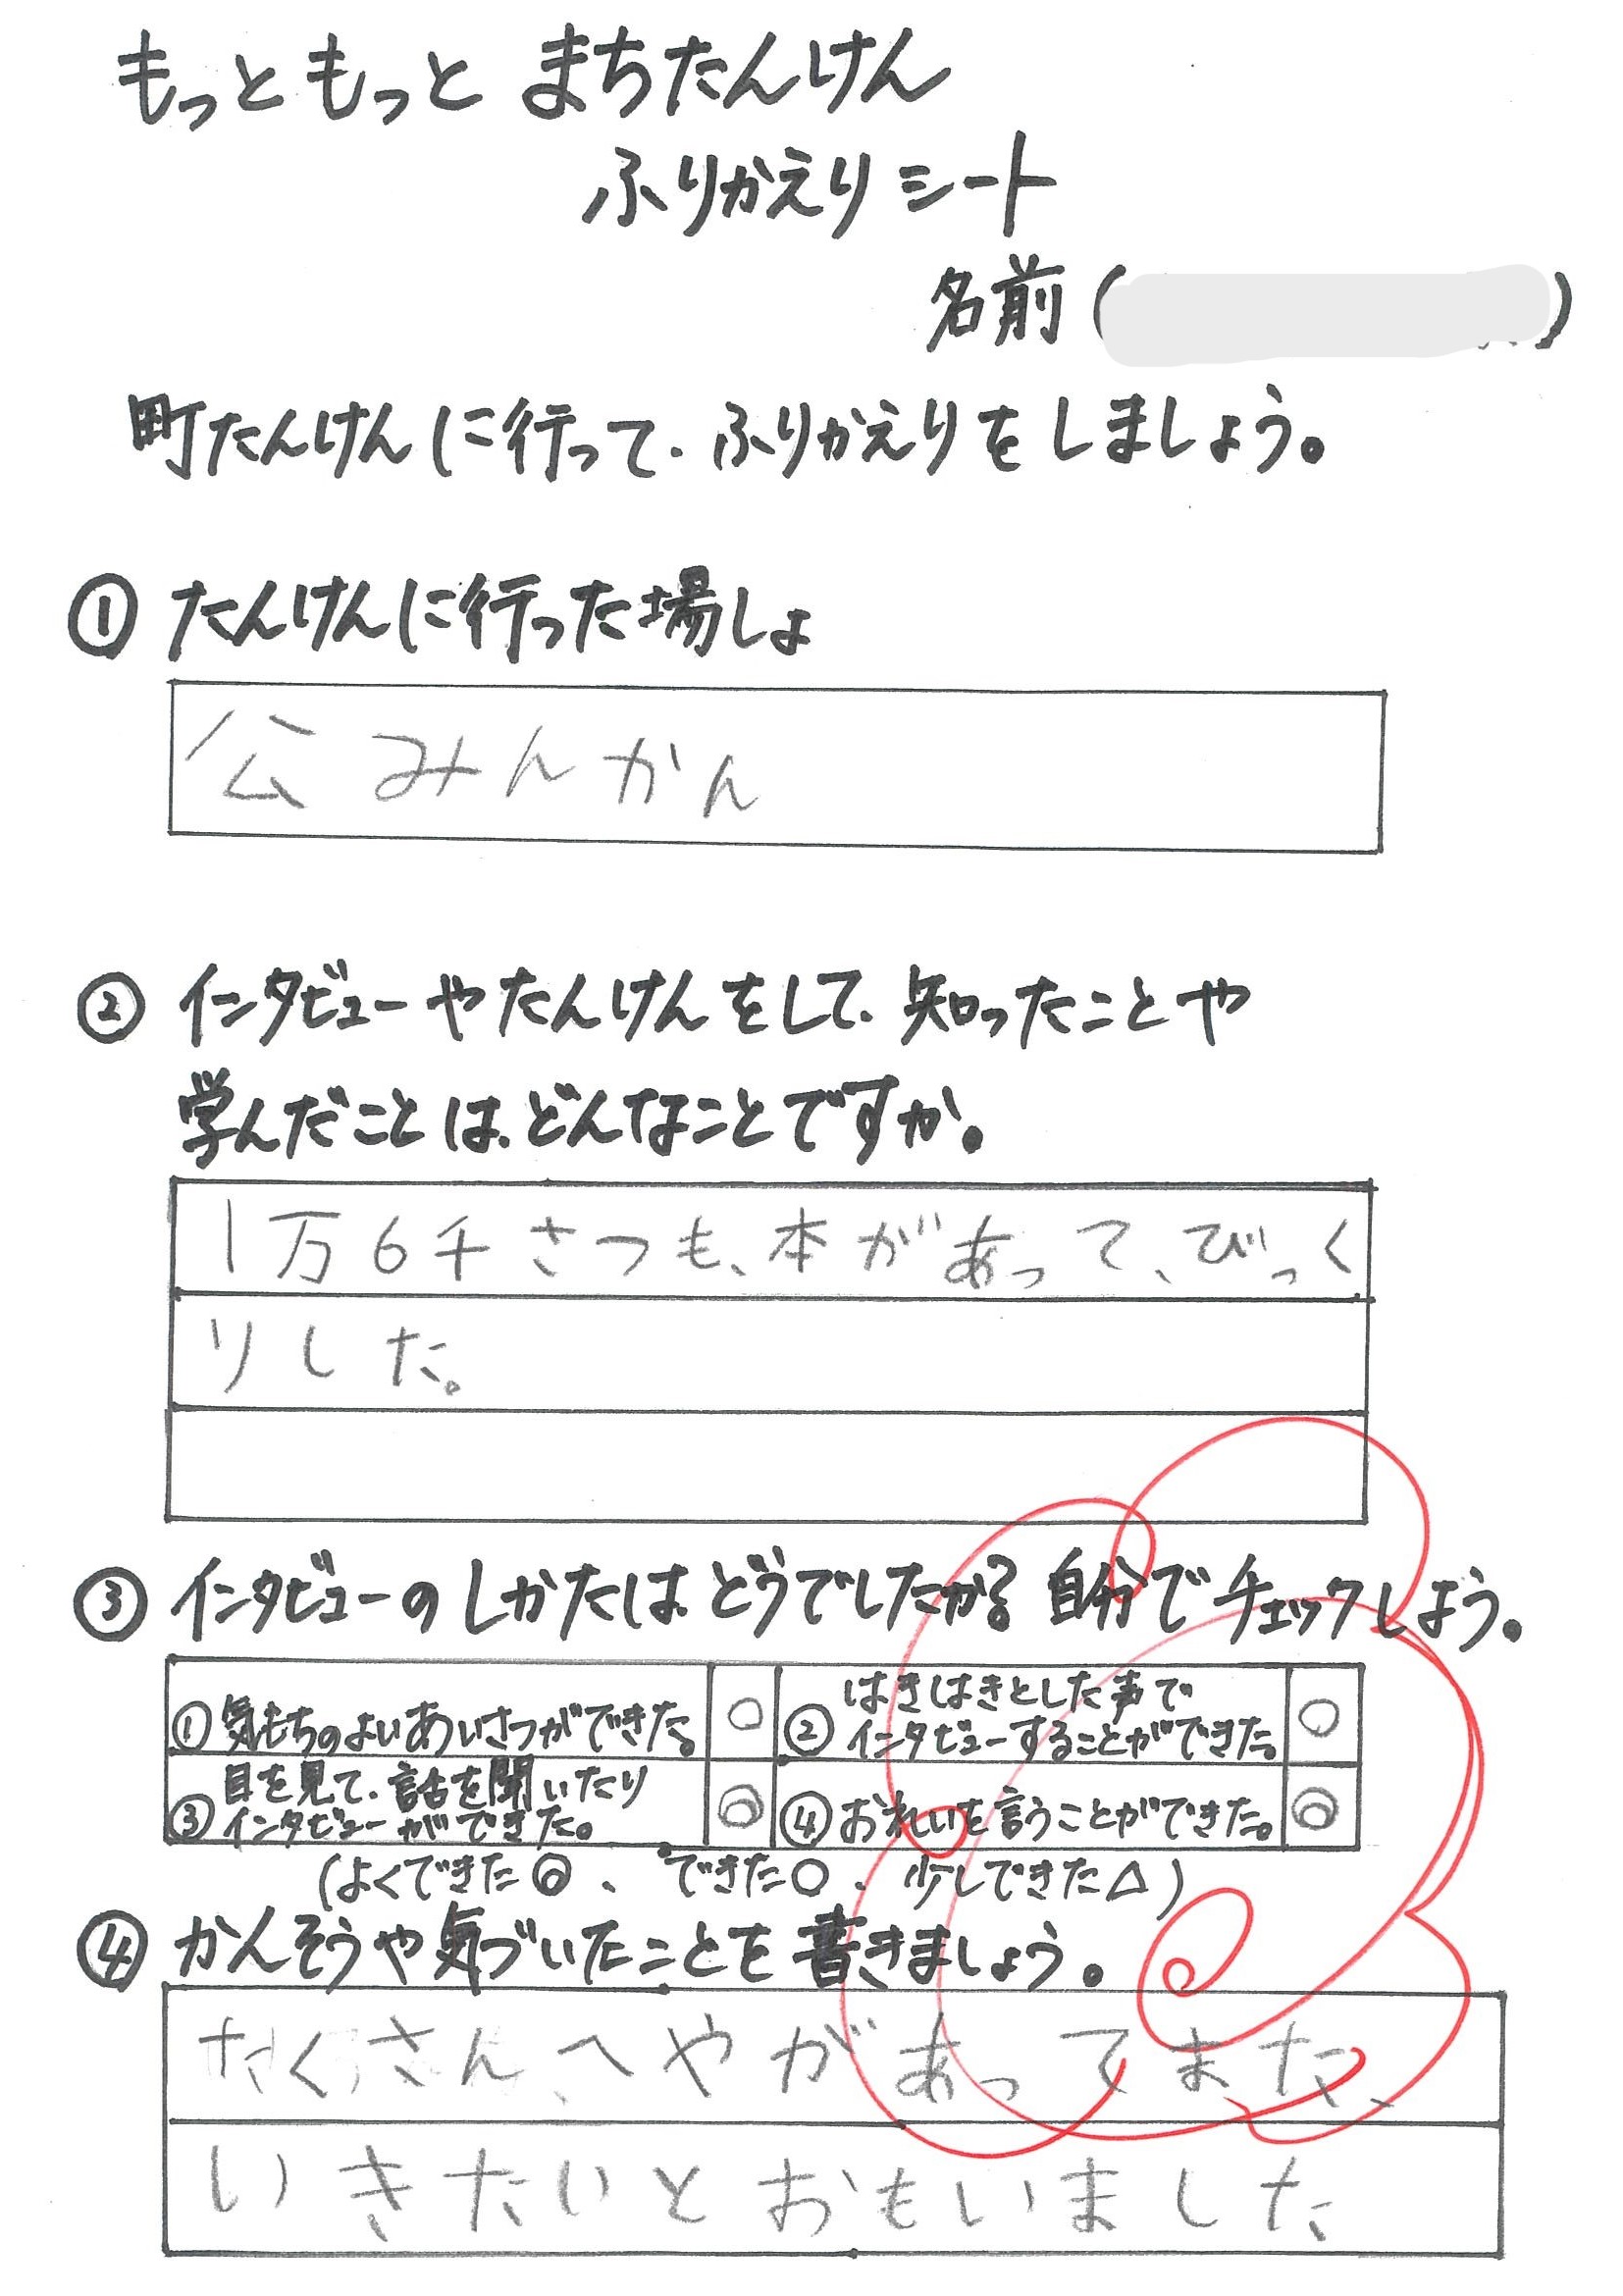 もっともっと まちたんけん
ふりかえりシート
名前( )
町たんけんに行って、ふりかえりをしましょう。
① たんけんに行った場しょ
公みんかん
② インタビューやたんけんをして、知ったことや
学んだことは、どんなことですか。
1万6千さつも、本があって、びっく
りした。
③ インタビューのしかたは、どうでしたか? 自分でチェックしよう。
① 気もちのよいあいさつができた。 ○
② はきはきとした声で
インタビューすることができた。 ○
③ 目を見て、話を聞いたり
インタビューができた。 ◎
④ おれいを言うことができた。 ◎
(よくできた◎、できた○、少しできた△)
④ かんそうや気づいたことを書きましょう。
たくさん、へやがあってまた、
いきたいとおもいました